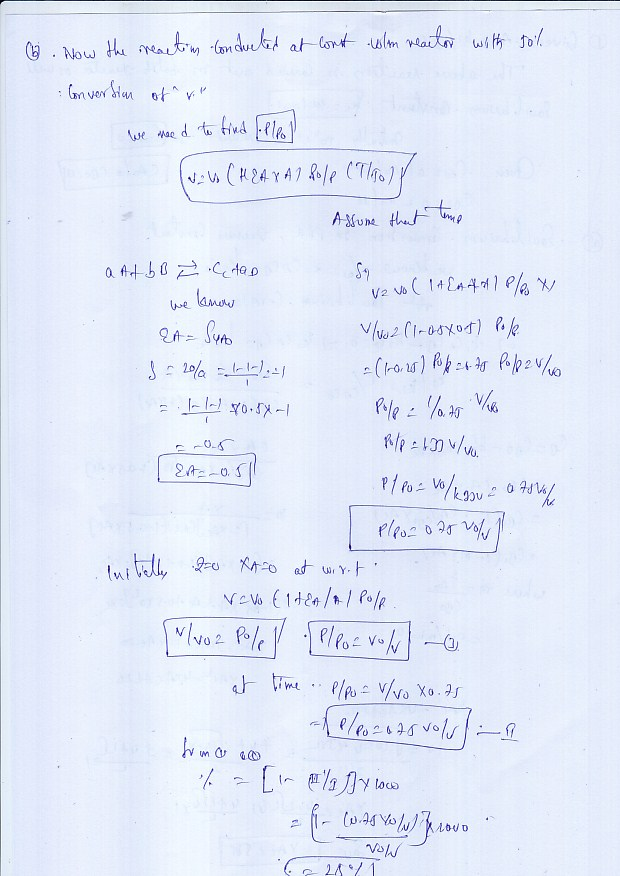 (b). Now the reaction conducted at const volm reactor with 50%
: Conversion of "
we need to find P/P0
V=V0 (1+EAXA) P0/P (T/T0)
Assume that temp
aA+bB ⇄ CC+dD
we know
EA= SyA0
S = 20/a = 1-1-1/1 = -1
= 1-1-1/1 x0.5x-1
= -0.5
EA=-0.5
V=V0 (1+EA+A) P/P0
V/V0= (1-0.5x0.5) P0/P
=(1-0.25) P0/P=0.75 P0/P=V/V0
P0/P = 1/0.75 V/V0
P0/P=1.33 V/V0
P/P0 = V0/1.33V = 0.75V0/V
P/P0=0.75 V0/V
Initially 2=0 XA=0 at w.r.t
V=V0 (1+EA/A) P0/P
V/V0= P0/P P/P0=V0/V
at time P/P0= V/V0 x0.75
= P/P0=0.75 V0/V — II
from
% = [1- (II/I)]x1000
= [1- (0.75V0/V)/V0/V]x1000
= 25%